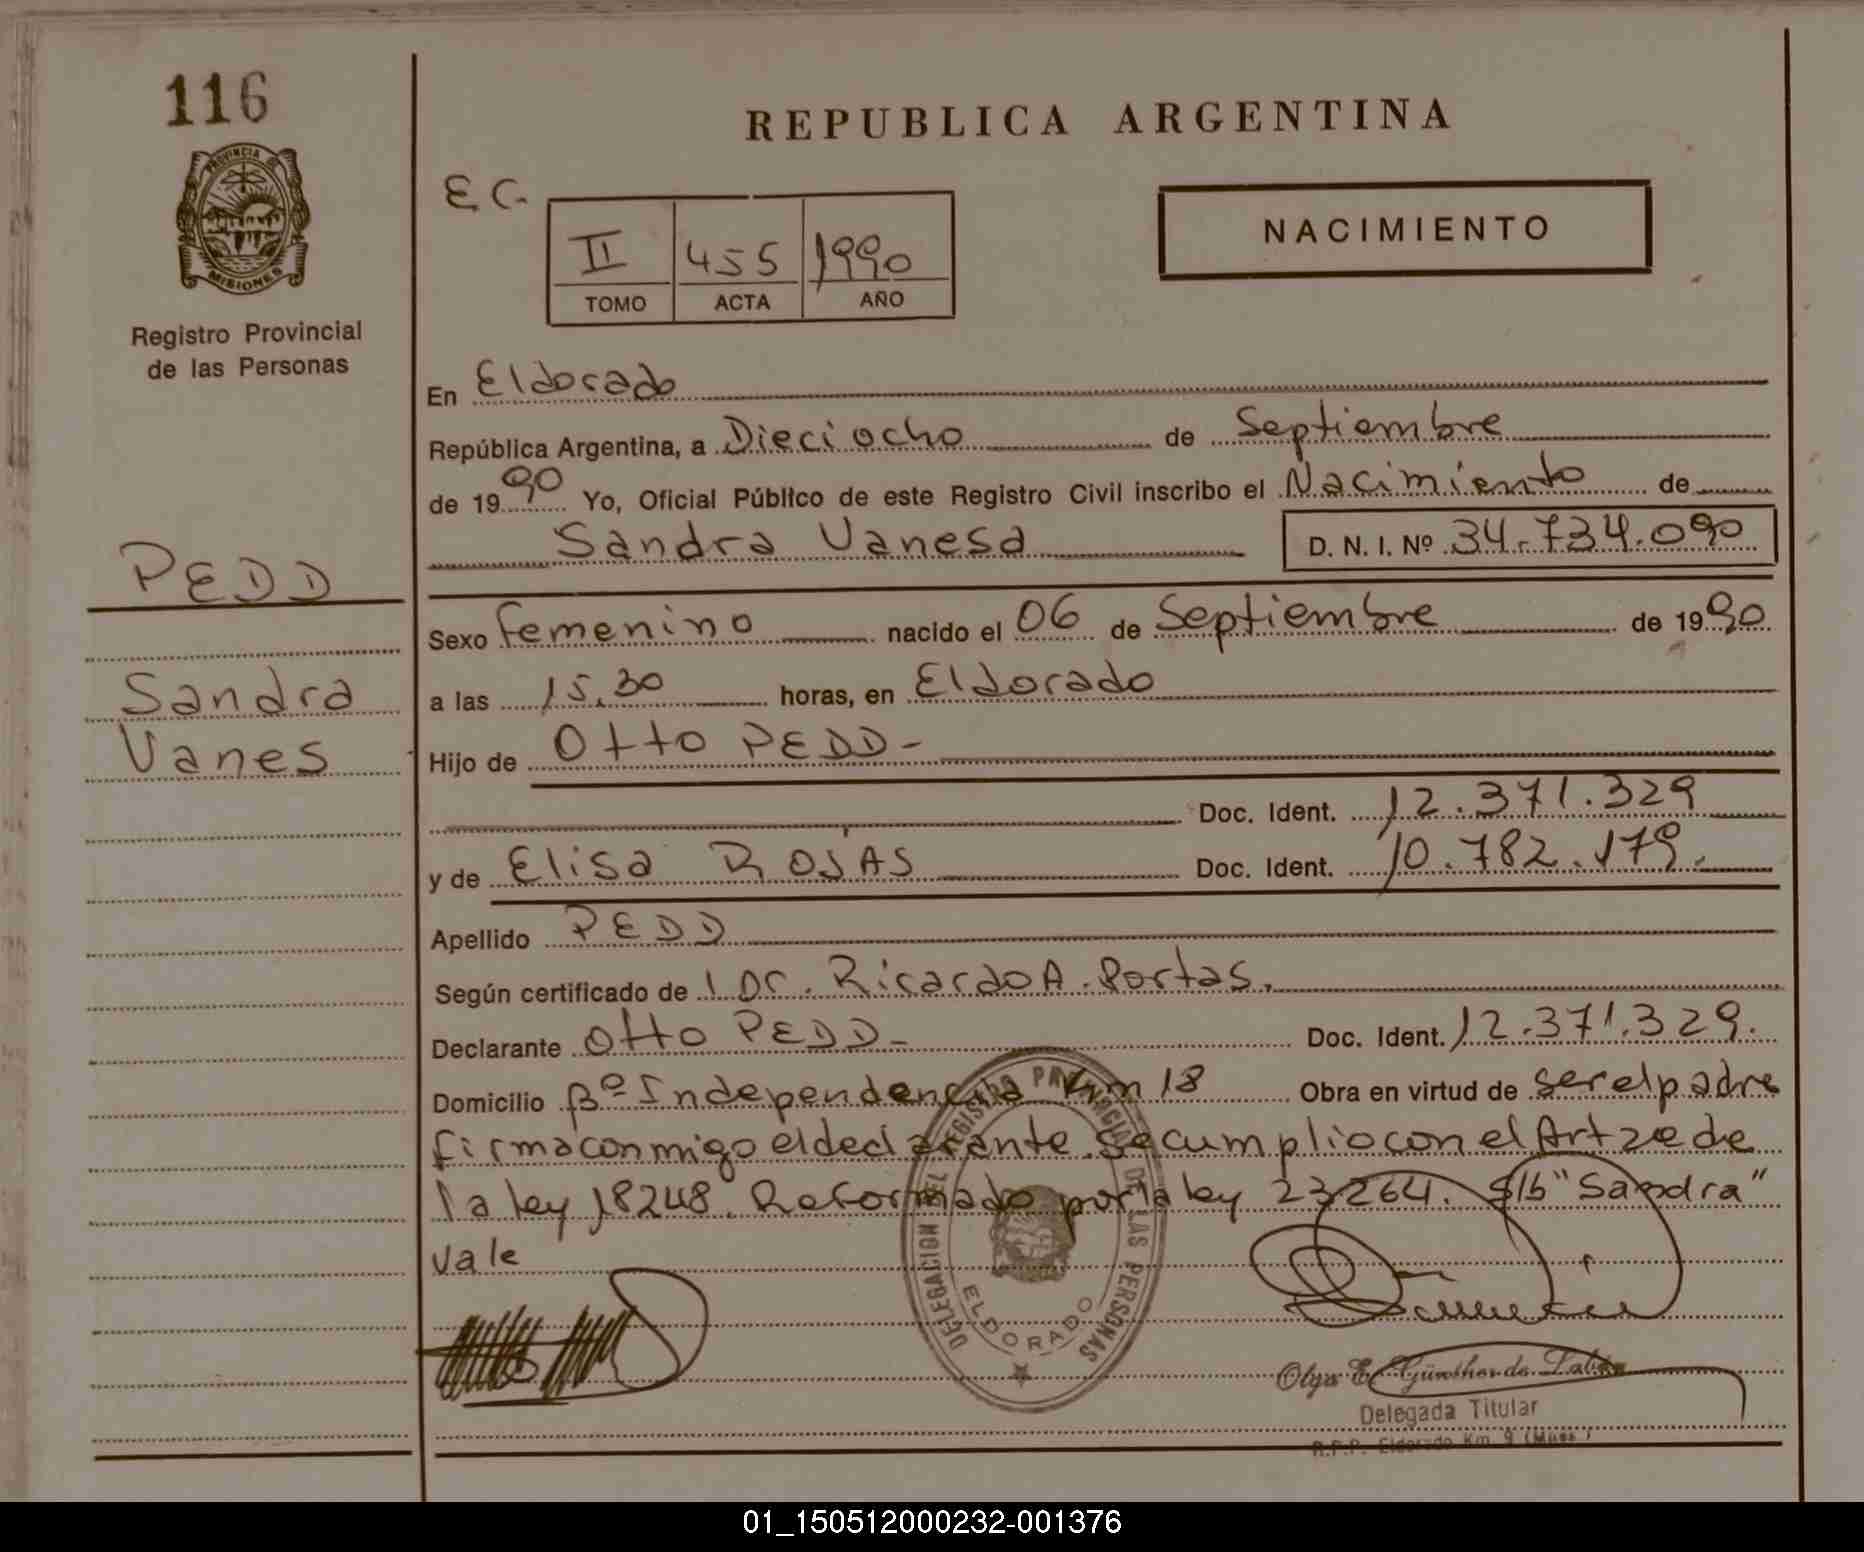 116
PROVINCIA DE
MISIONES
Registro Provincial
de las Personas
PEDD
Sandra
Vanes
REPUBLICA ARGENTINA
E.C.
II 455 1990
TOMO ACTA AÑO
NACIMIENTO
En Eldorado
República Argentina, a Dieciocho de Septiembre
de 1990 Yo, Oficial Público de este Registro Civil inscribo el Nacimiento de
Sandra Vanesa D. N. I. Nº 34.734.090
Sexo femenino nacido el 06 de Septiembre de 1990
a las 15.30 horas, en Eldorado
Hijo de Otto PEDD-
Doc. Ident. 12.371.329
y de Elisa ROJAS Doc. Ident. 10.782.179.
Apellido PEDD
Según certificado de Dr. Ricardo A. Portas.
Declarante Otto PEDD- Doc. Ident. 12.371.329.
Domicilio Bº Independencia Km 18 Obra en virtud de ser el padre
firma conmigo el declarante. Se cumplio con el Art 2e de
la ley 18248. Reformado por la ley 23264. S/b "Sandra"
Vale
DELEGACION DEL REGISTRO PROVINCIAL DE LAS PERSONAS
ELDORADO
Olga E. Günther de
Delegada Titular
R.P.P. Eldorado Km. 9 (Mnes.)
01_150512000232-001376